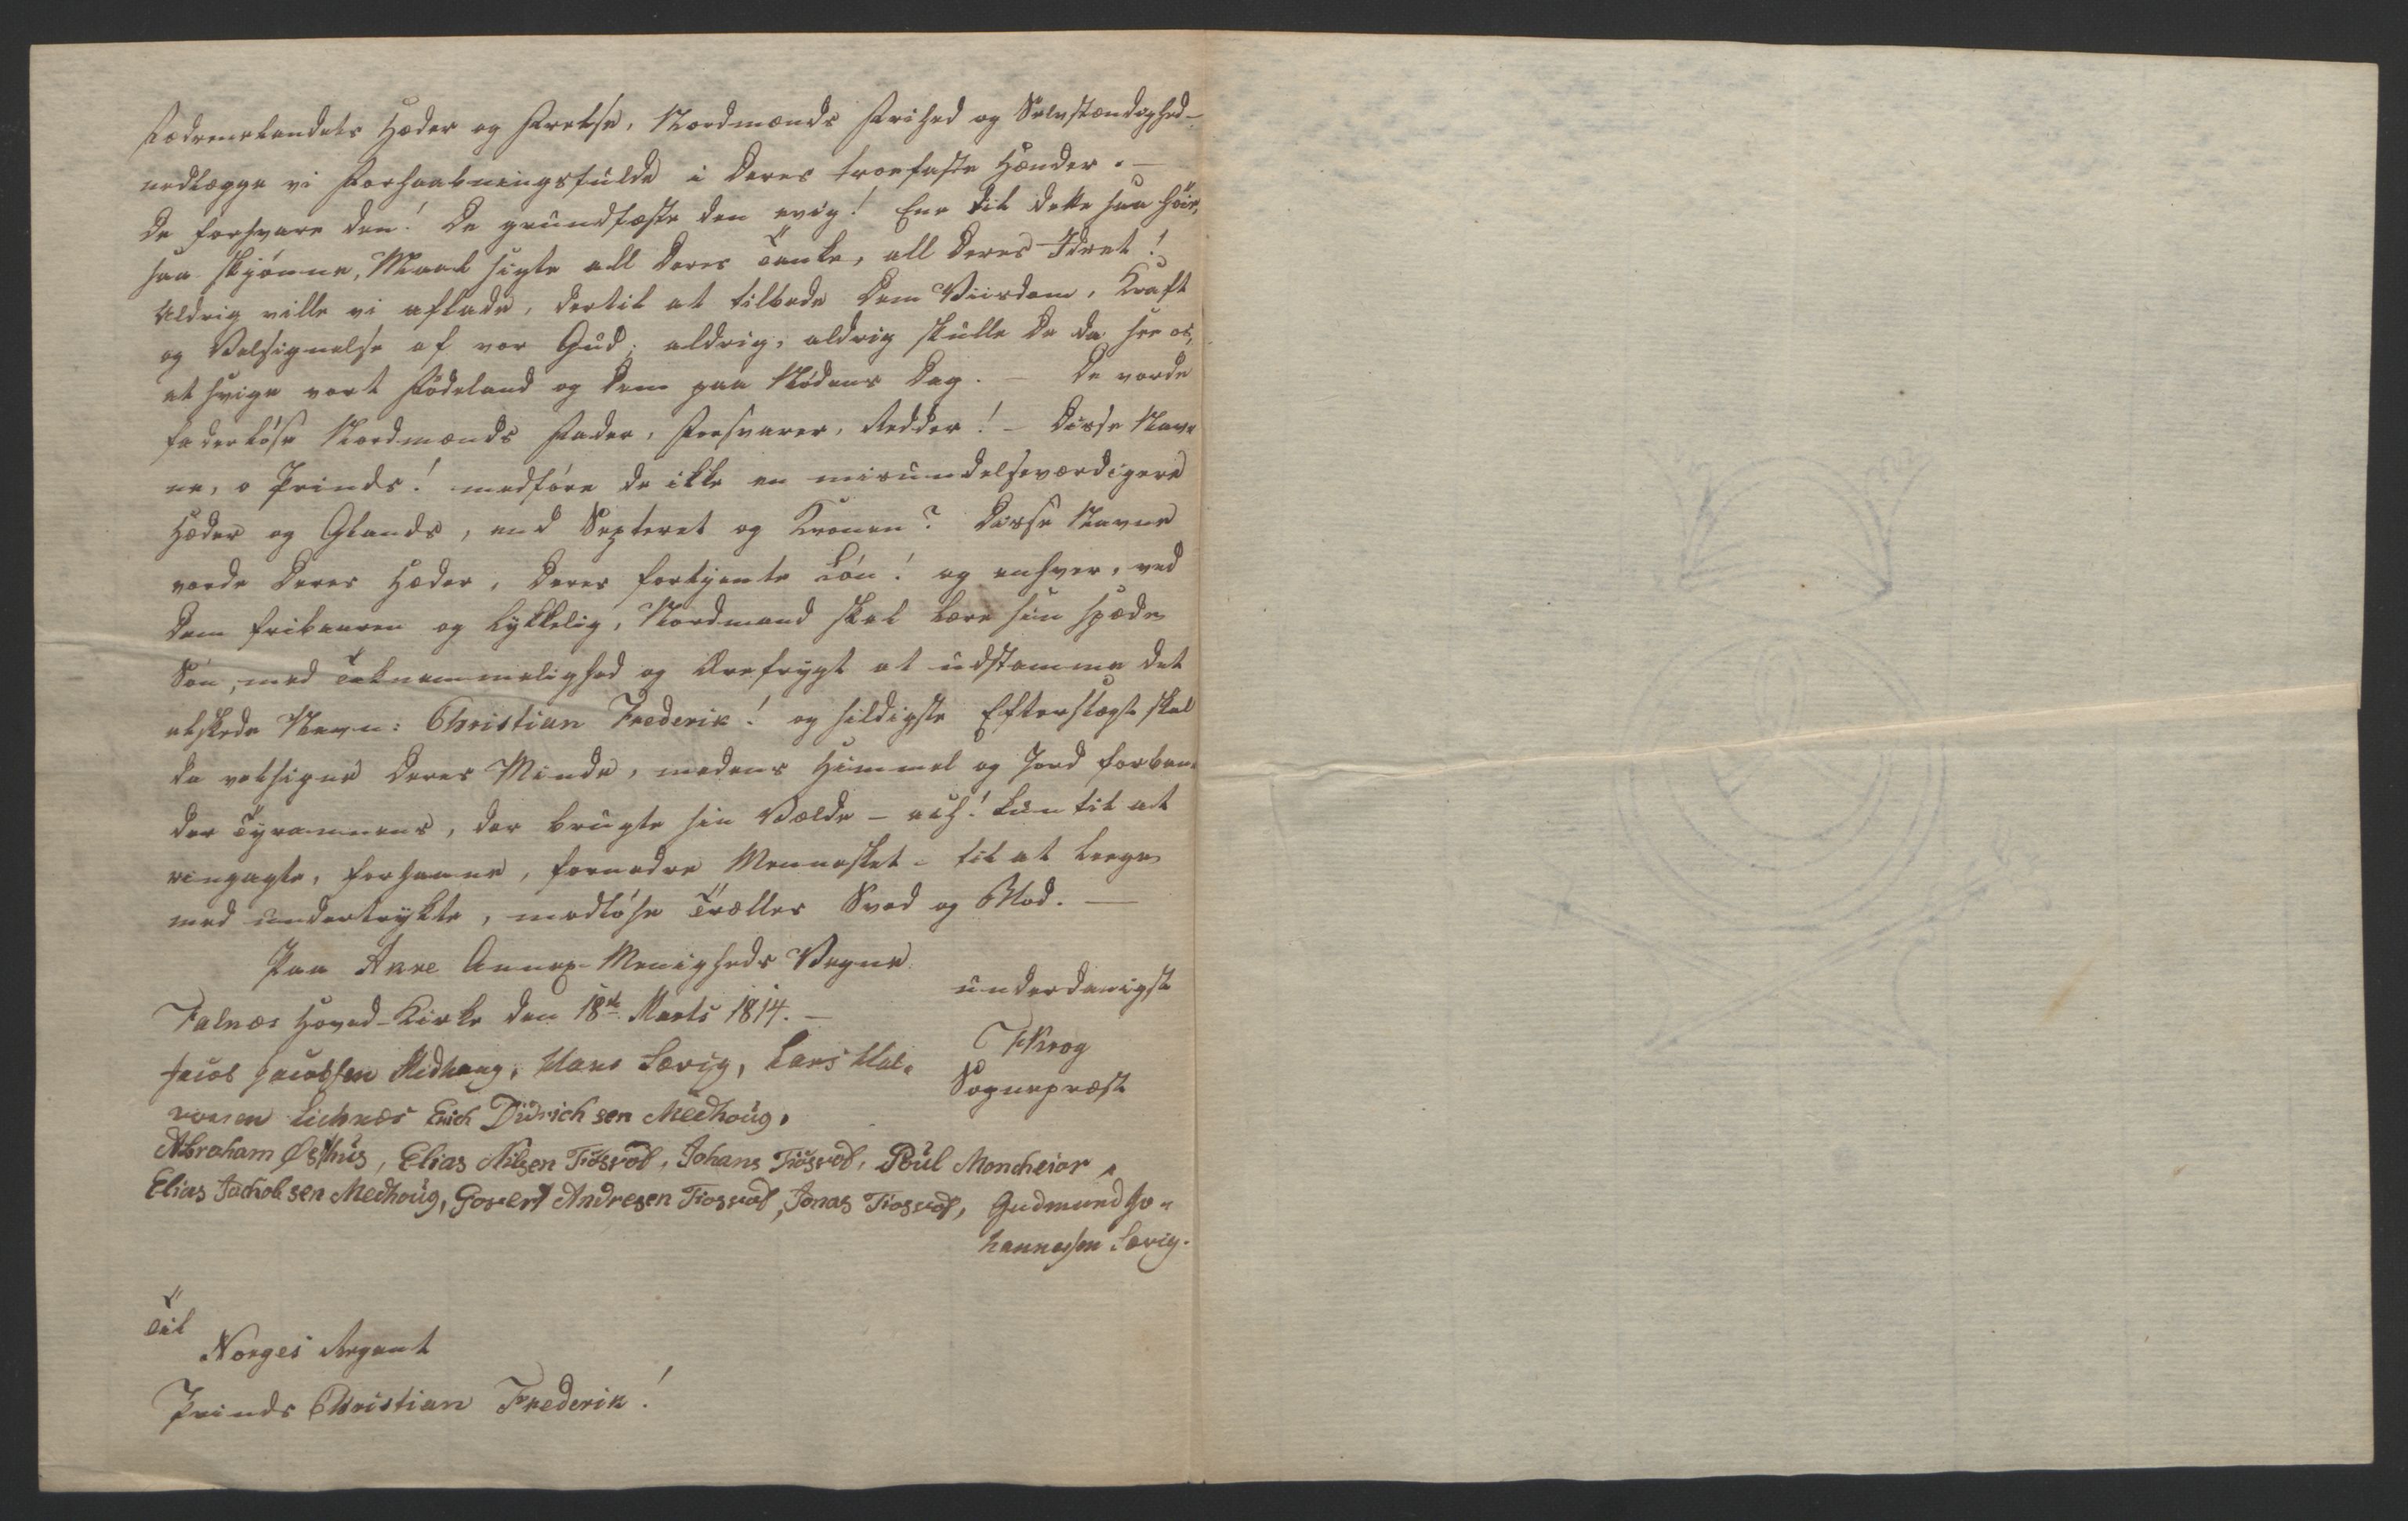 Fædrenelandets Hæder og Frelse, Nordmænds Frihed og Selvstændighed –
nedlægge vi Forhaabningsfulde i Deres troefaste Hænder. –
De forsvare den! De grundfæste den evig! Ene til dette saa høie,
saa skjønne, Maal sigte all Deres Tanke, all Deres Idræt!
Aldrig ville vi aflade, dertil at tilbede Dem Viisdom, Kraft
og Velsignelse af vor Gud; aldrig, aldrig skulle De da see os,
at svige vort Födeland og Dem paa Nödens Dag. – De vorde
faderløse Nordmænds Fader, Forsvarer, Redder! – Disse Nav¬
ne, o Prinds! medføre de ikke en misundelseværdigere
Hæder og Glands, end Septeret og Kronen? Disse Navne
vorde Deres Hæder, Deres fortjente Løn! og enhver, ved
Dem fribaaren og lykkelig, Nordmand skal lære sin spæde
Søn, med Taknemmelighed og Ærefrygt at udstamme det
elskede Navn: Christian Frederik! og sildigste Efterslægt skal
da velsigne Deres Minde, medens Himmel og Jord forban¬
der Tyrannens, der brugte sin Vælde – ach! kun til at
ringagte, forhaane, fornedre Mennesket – til at leege
med undertrykte, modløse Trælles Sved og Blod. –
Paa Aare Annex-Menigheds Vegne
Falnæs Hoved-Kirke den 18de Marts 1814. –
underdanigst
Krog
Sognepræst
Jacob Jacobsen Medhaug, Hans Sævig, Lars Hal¬
vorsen Lichnæs Erich Didrichsen Medhoug,
Abraham Østhus, Elias Nilsen Tiösvold, Johans Tiösvold, Poul Moncheior,
Elias Jachobsen Medhoug, Govert Andresen Tiosvold, Jonas Tiosvold, Gudmund Jo¬
hannessen Sævig.
Til
Norges Regent
Prinds Christian Frederik!